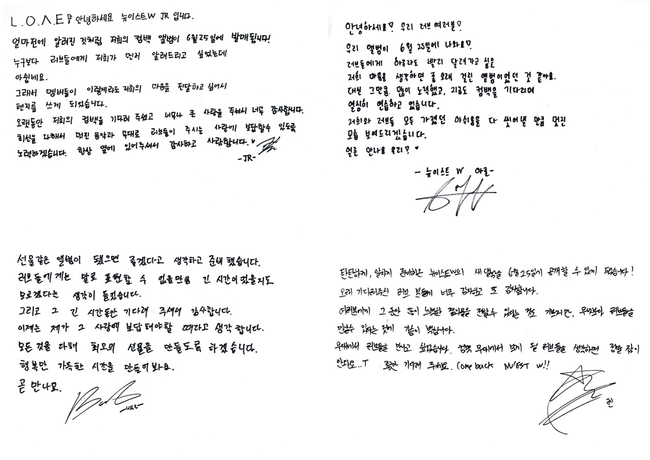 L.O.Λ.E 안녕하세요 뉴이스트W JR 입니다.
얼마전에 알려진 것처럼 저희의 컴백 앨범이 6월25일에 발매됩니다!
누구보다 러브들에게 저희가 먼저 알려드리고 싶었는데
아쉽네요.
그래서 멤버들이 이렇게라도 저희의 마음을 전달하고 싶어서
편지를 쓰게 되었습니다.
오랫동안 저희의 컴백을 기다려 주셨고 너무나 큰 사랑을 주셔서 너무 감사합니다.
최선을 다해서 멋진 음악과 무대로 러브들이 주시는 사랑에 보답할수 있도록
노력하겠습니다. 항상 옆에 있어주셔서 감사하고 사랑합니다.♥
-JR-
안녕하세요? 우리 러브 여러분?
우리 앨범이 6월 25일에 나와요?
러브들에게 하루라도 빨리 달려가고 싶은
저희 마음을 생각하면 꽤 오래 걸린 앨범이었던 것 같아요.
대신 그만큼, 많이 노력했고, 지금도 컴백을 기다리며
열심히 연습하고 있습니다.
저희와 러브들 모두 가졌던 아쉬움을 다 씻어낼 만큼 멋진
모습 보여드리겠습니다.
얼른 만나요 우리?♥
- 뉴이스트 W 아론 -
선물같은 앨범이 됐으면 좋겠다고 생각하고 준비했습니다.
러브들에게는 말로 표현할 수 없을만큼 긴 시간이었을지도
모르겠다는 생각이 들었습니다.
그리고 그 긴 시간동안 기다려 주셔서 감사합니다.
이제는 제가 그 사랑에 보답해야할 때라고 생각합니다.
모든 것을 다해 최고의 선물을 만들도록 하겠습니다.
행복만 가득한 시간을 만들어봐요.
곧 만나요.
탄탄하게, 알차게 준비하는 뉴이스트W의 새 앨범을 6월25일에 공개할 수 있게 되었습니다!
오래 기다려주신 러브 분들께 너무 감사하고 또 감사합니다.
무대에서 러브들을 만나고 싶었습니다.
안와요...T 조금만 기다려 주세요. Come back NU'EST W!!
렌